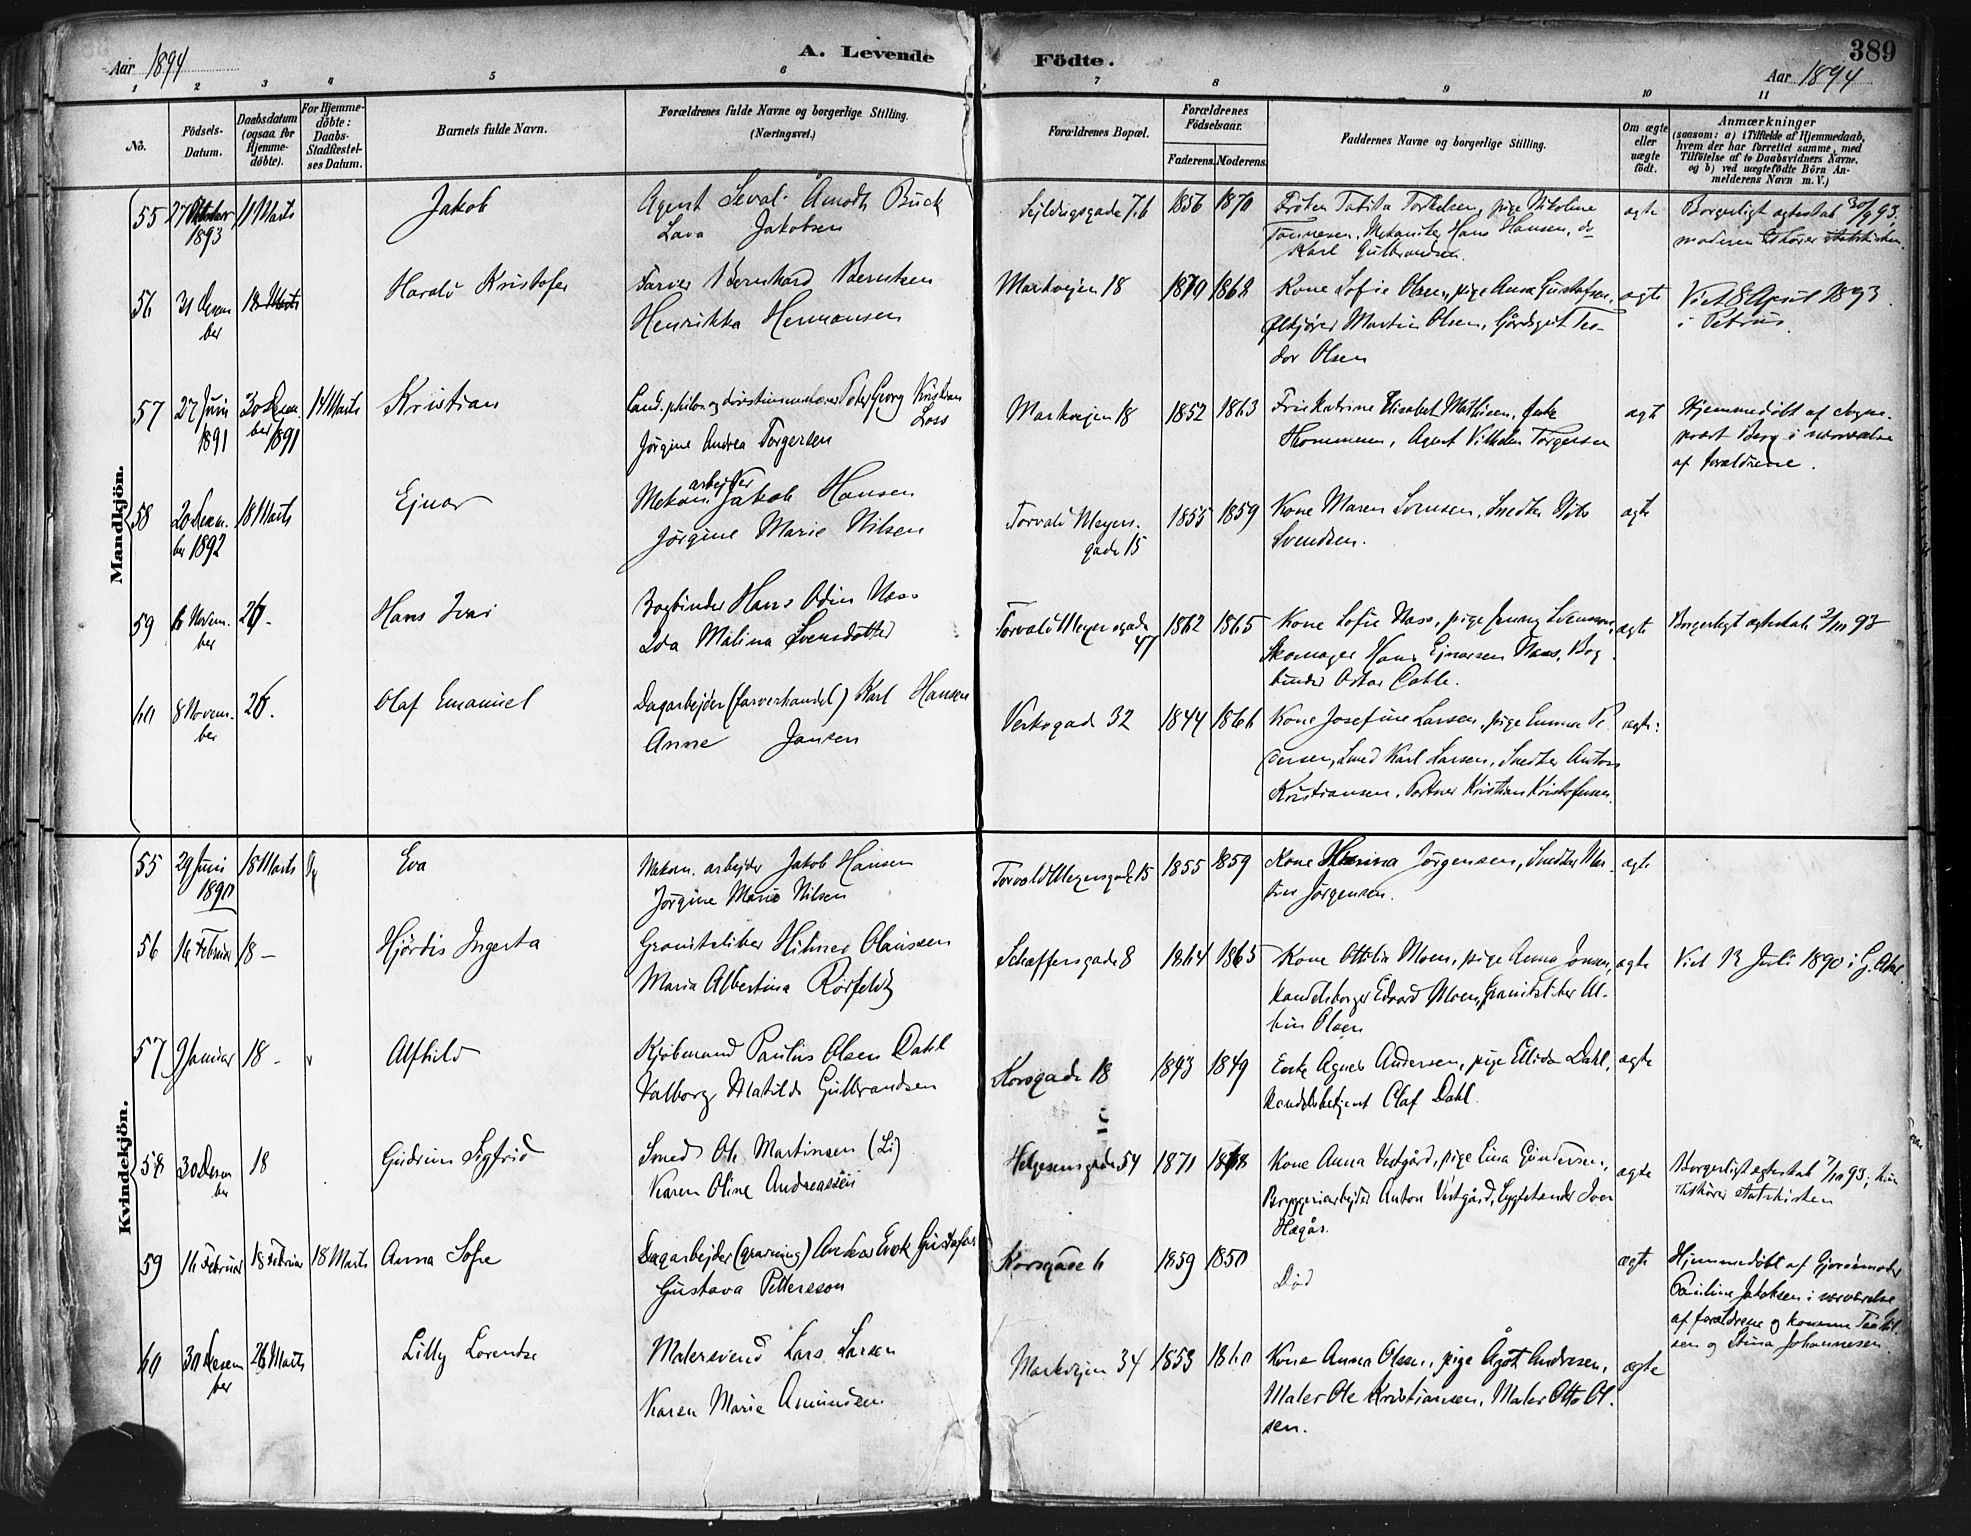 Aar 1894
A. Levende
Födte.
389
Aar 1894
1 2 3 4 5 6 7 8 9 10 11
No.
Födsels-Datum.
Daabsdatum (ogsaa for Hjemmedöbte).
For Hjemmedöbte: Daabs-Stadfæstelses Datum.
Barnets fulde Navn.
Forældrenes fulde Navne og borgerlige Stilling.
(Næringsvei.)
Forældrenes Bopæl.
Forældrenes Födselsaar.
Faderens. Moderens.
Faddernes Navne og borgerlige Stilling.
Om ægte eller uægte födt.
Anmærkninger
(saasom: a) i Tilfælde af Hjemmedaab,
hvem der har forrettet samme, med
Tilföielse af to Daabsvidners Navne,
og b) ved uægtefödte Börn Anmelderens Navn m. V.)
Mandkjön.
55 27 Oktober 1893 11 Marts Jakob
Agent Seval Amodt Buck
Lava Jakobsen
1856 1870
Tønnesen, Mekaniker Hans Hansen,
Karl Gulbrandsen.
ægte
Borgerligt ægteskab 30/9 93.
56 31 Desember 18 Marts Harald Kristofer
Farver Bernhard Berntsen
Henrikka Hermansen
Markvejen 18 1870 1868
Kone Sofie Olsen, pige Anna Gustafsen,
Ølkjører Martin Olsen, Gårdsgut Teodor Olsen
ægte
Viet 8 April 1893
i Petrus.
57 27 Juni 1891 30 Desember 1891 14 Marts Kristian
Georg Kristian Loss
Jörgine Andrea Torgersen
Markvejen 18 1852 1863
Elisabet Mathisen,
Agent Vilhelm Torgersen
ægte
Hjemmedöbt af
Berg i nærværelse
af forældrene.
58 20 Desember 1892 18 Marts Ejnar
Mekan. arbejder Jakob Hansen
Jörgine Marie Nilsen
Torvald Meyersgade 15 1855 1859
Kone Maren Svensen, Snedker
Svendsen.
ægte
59 6 November 26 - Hans Ivar
Bogbinder Hans Odin Næss
Ida Malina Svensdotter
Torvald Meyersgade 47 1862 1865
Kone Sofie Næss, pige Jenny Svensen,
Skomager Hans Ejnarsen Næss, Bogbinder Oskar Dahle.
ægte
Borgerligt ægteskab 2/10 93
60 8 November 26. Olaf Emanuel
Dagarbejder (farverhandel) Karl Hansen
Anne Jansen
Verksgade 32 1844 1866
Kone Josefine Larsen, pige Emma Pedersen, Smed Karl Larsen, Snedker Anton
Kristiansen, Portner Kristian Kristofersen.
ægte.
Kvindekjön.
55 29 Juni 1890 18 Marts Eva
Mekan. arbejder Jakob Hansen
Jörgine Marie Nilsen
Torvald Meyersgade 15 1855 1859
Kone Jörgensen, Snedker Martin Jörgensen.
ægte
56 16 Februar 18 - Hjördis Ingerta
Granitsliber Hilmer Olaussen
Maria Albertina Rörfeldt
Schæffersgade 8 1864 1865
Kone Ottilia Moen, pige Anna Jonsen,
Handelsborger Edvard Moen, Granitsliber Albin Olsen
ægte
Viet 13 Juli 1890 i G. Aker.
57 9 Januar 18 - Alfhild
Kjöbmand Paulus Olsen Dahl
Valborg Matilde Gulbrandsen
Korsgade 18 1843 1849
Enke Agnes Andersen, pige Ellida Dahl,
Handelsbetjent Olaf Dahl.
ægte
58 30 Desember 18 Gudrun Sigfrid
Smed Ole Martinsen (Li)
Karen Oline Andreassen
Helgesensgade 54 1871 1868
Kone Anna Vestgård, pige Lina Gundersen,
Bryggeriarbejder Anton Vestgård, Lygtetænder Iver
Hagås.
ægte
Borgerligt ægteskab 7/10 93; hun
tilhörer statskirken
59 16 Februar 18 Februar 18 Marts Anna Sofie
Dagarbejder (gravning) Andreas Erik Gustafsen
Gustava Pettersson
Korsgade 6 1859 1850
Död
ægte
Hjemmedöbt af Gjordemoder
Pauline Jakobsen i nærværelse
af forældrene og konerne
og Stina Johannesen
60 30 Desember 26 Marts Lilly Lorentse
Malersvend Lars Larsen
Karen Marie Amundsen
Markvejen 34 1853 1860
Kone Anna Olsen, pige Ågot Andresen,
Maler Ole Kristiansen, Maler Otto Olsen.
ægte